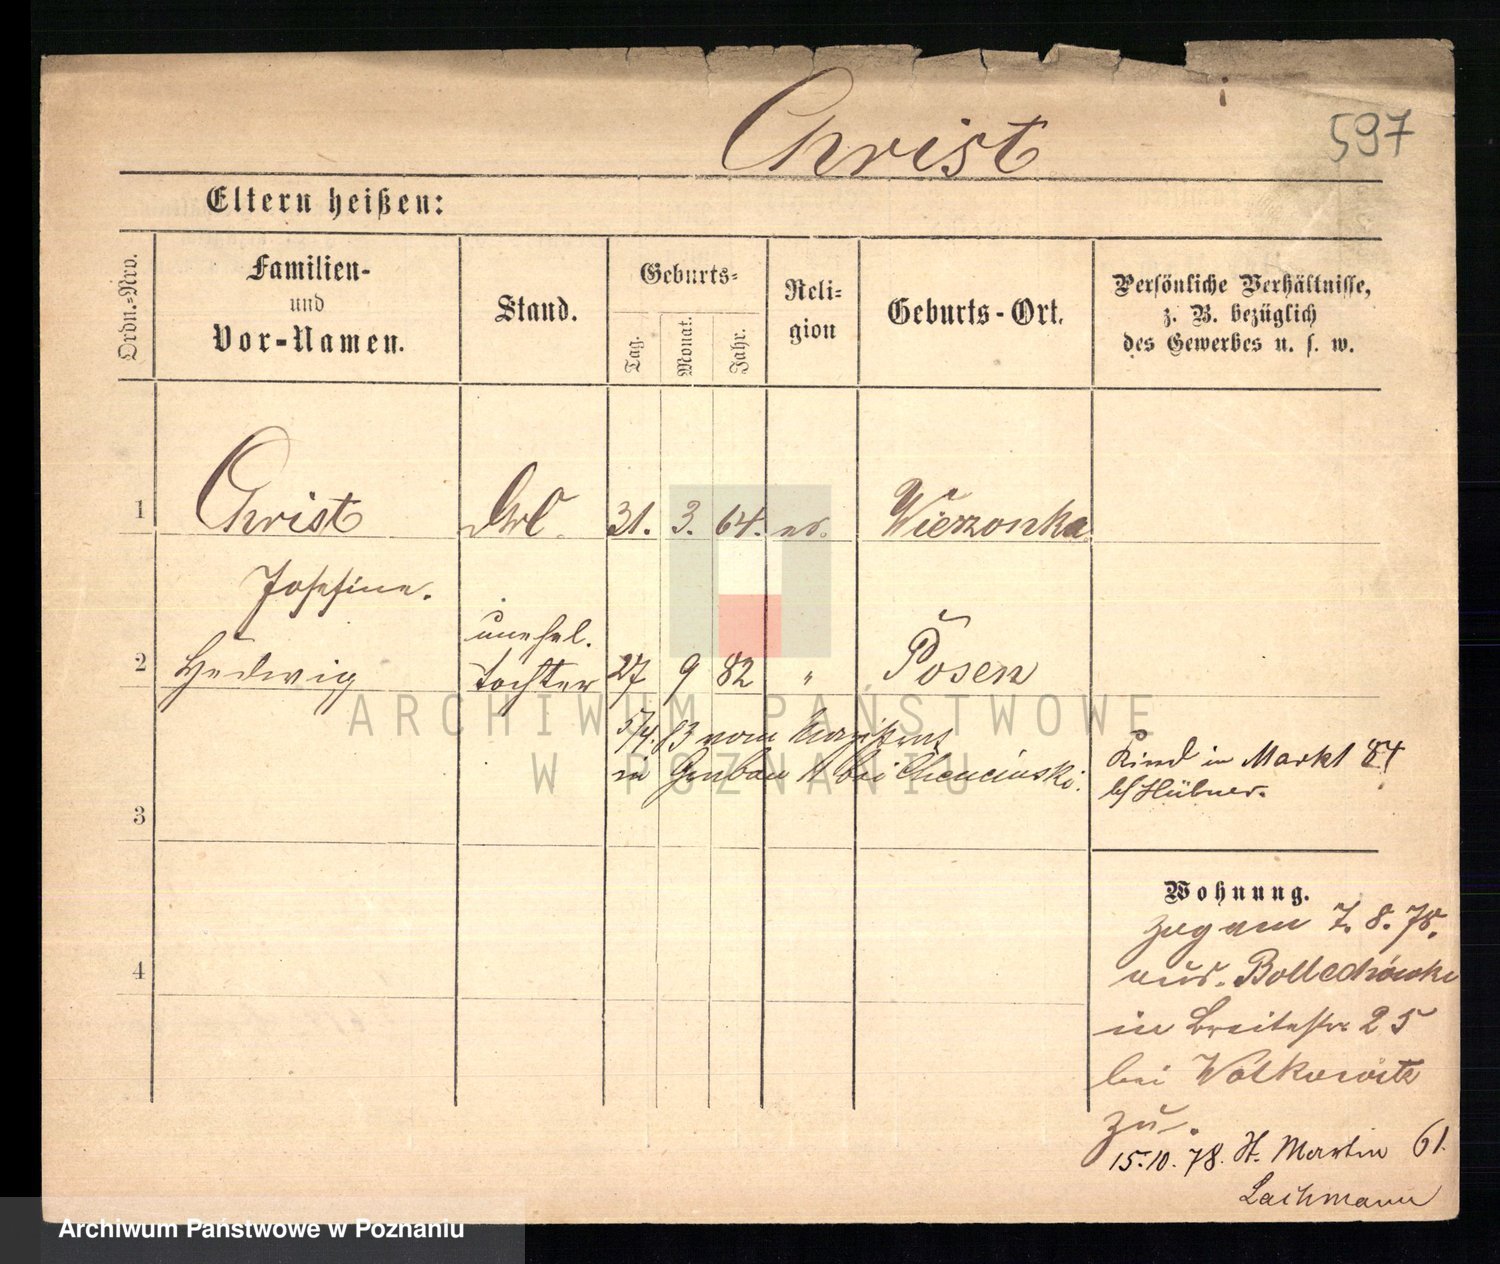 597
Christ
Eltern heißen:
Ordn.-Nro.
Familien-
und
Vor-Namen.
Stand.
Geburts-
Tag.
Monat.
Jahr.
Reli-
gion
Geburts-Ort.
Persönliche Verhältnisse,
z. B. bezüglich
des Gewerbes u. s. w.
1 Christ 31. 3. 64. Wierzonka
Josefine.
unehel.
2 Hedwig Tochter 27 9 82 " Posen
5/4. 83 vom
in bei Chencinski.
Kind in Markt 84
b/ Hübner.
3
Wohnung.
zog am 7. 8. 78.
aus
in Breitestr 25
bei Wolkowitz
zu.
4
15.10. 78. St. Martin 61.
Lachmann
ARCHIWUM PAŃSTWOWE
W POZNANIU
Archiwum Państwowe w Poznaniu